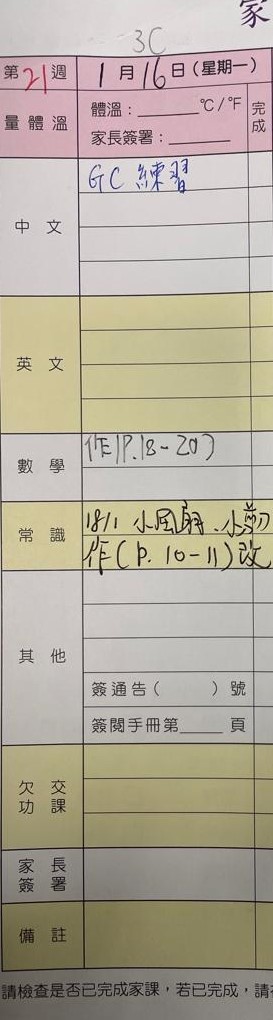 家
3C
第21週 1月16日(星期一)
量體溫 體溫:______℃/℉ 完成
家長簽署:______
中文 GC 練習
英文
數學 作(P.18-20)
常識 18/1 小風扇、小剪刀
作(P.10-11)改
其他
簽通告( )號
簽閱手冊第____頁
欠交功課
家長簽署
備註
請檢查是否已完成家課,若已完成,請